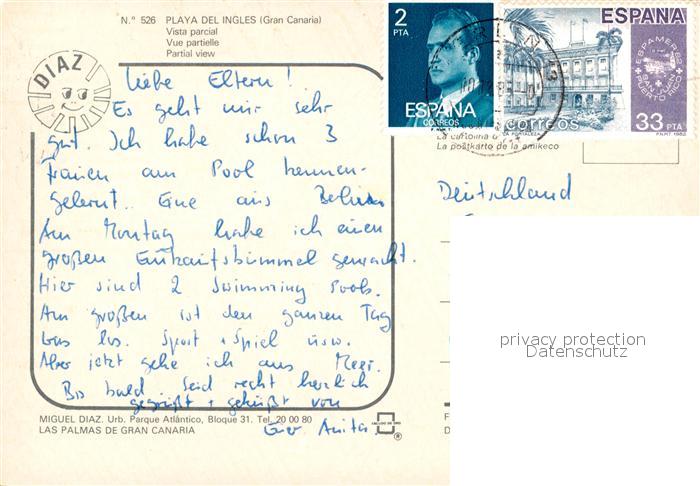 N.º 526 PLAYA DEL INGLES (Gran Canaria)
Vista parcial
Vue partielle
Partial view
DIAZ
2
PTA
ESPAÑA
CORREOS
ESPAÑA
ESPAMER 82
SAN JUAN
PUERTO RICO
CORREOS
33 PTA
F.N.M.T. 1982
La cartolina d
La poŝtkarto de la amikeco
Liebe Eltern!
Es geht mir sehr
gut. Ich habe schon 3
Frauen am Pool kennen-
gelernt. Eine aus Berlin
Am Montag habe ich einen
großen Einkaufsbummel gemacht.
Hier sind 2 Swimming Pools.
Am großen ist den ganzen Tag
was los. Sport + Spiel usw.
Aber jetzt gehe ich ans Meer.
Bis bald Seid recht herzlich
gegrüßt + geküßt von
Eurer Anita.
Deutschland
privacy protection
Datenschutz
MIGUEL DIAZ. Urb. Parque Atlántico, Bloque 31. Tel. 20 00 80
LAS PALMAS DE GRAN CANARIA
®
F
D